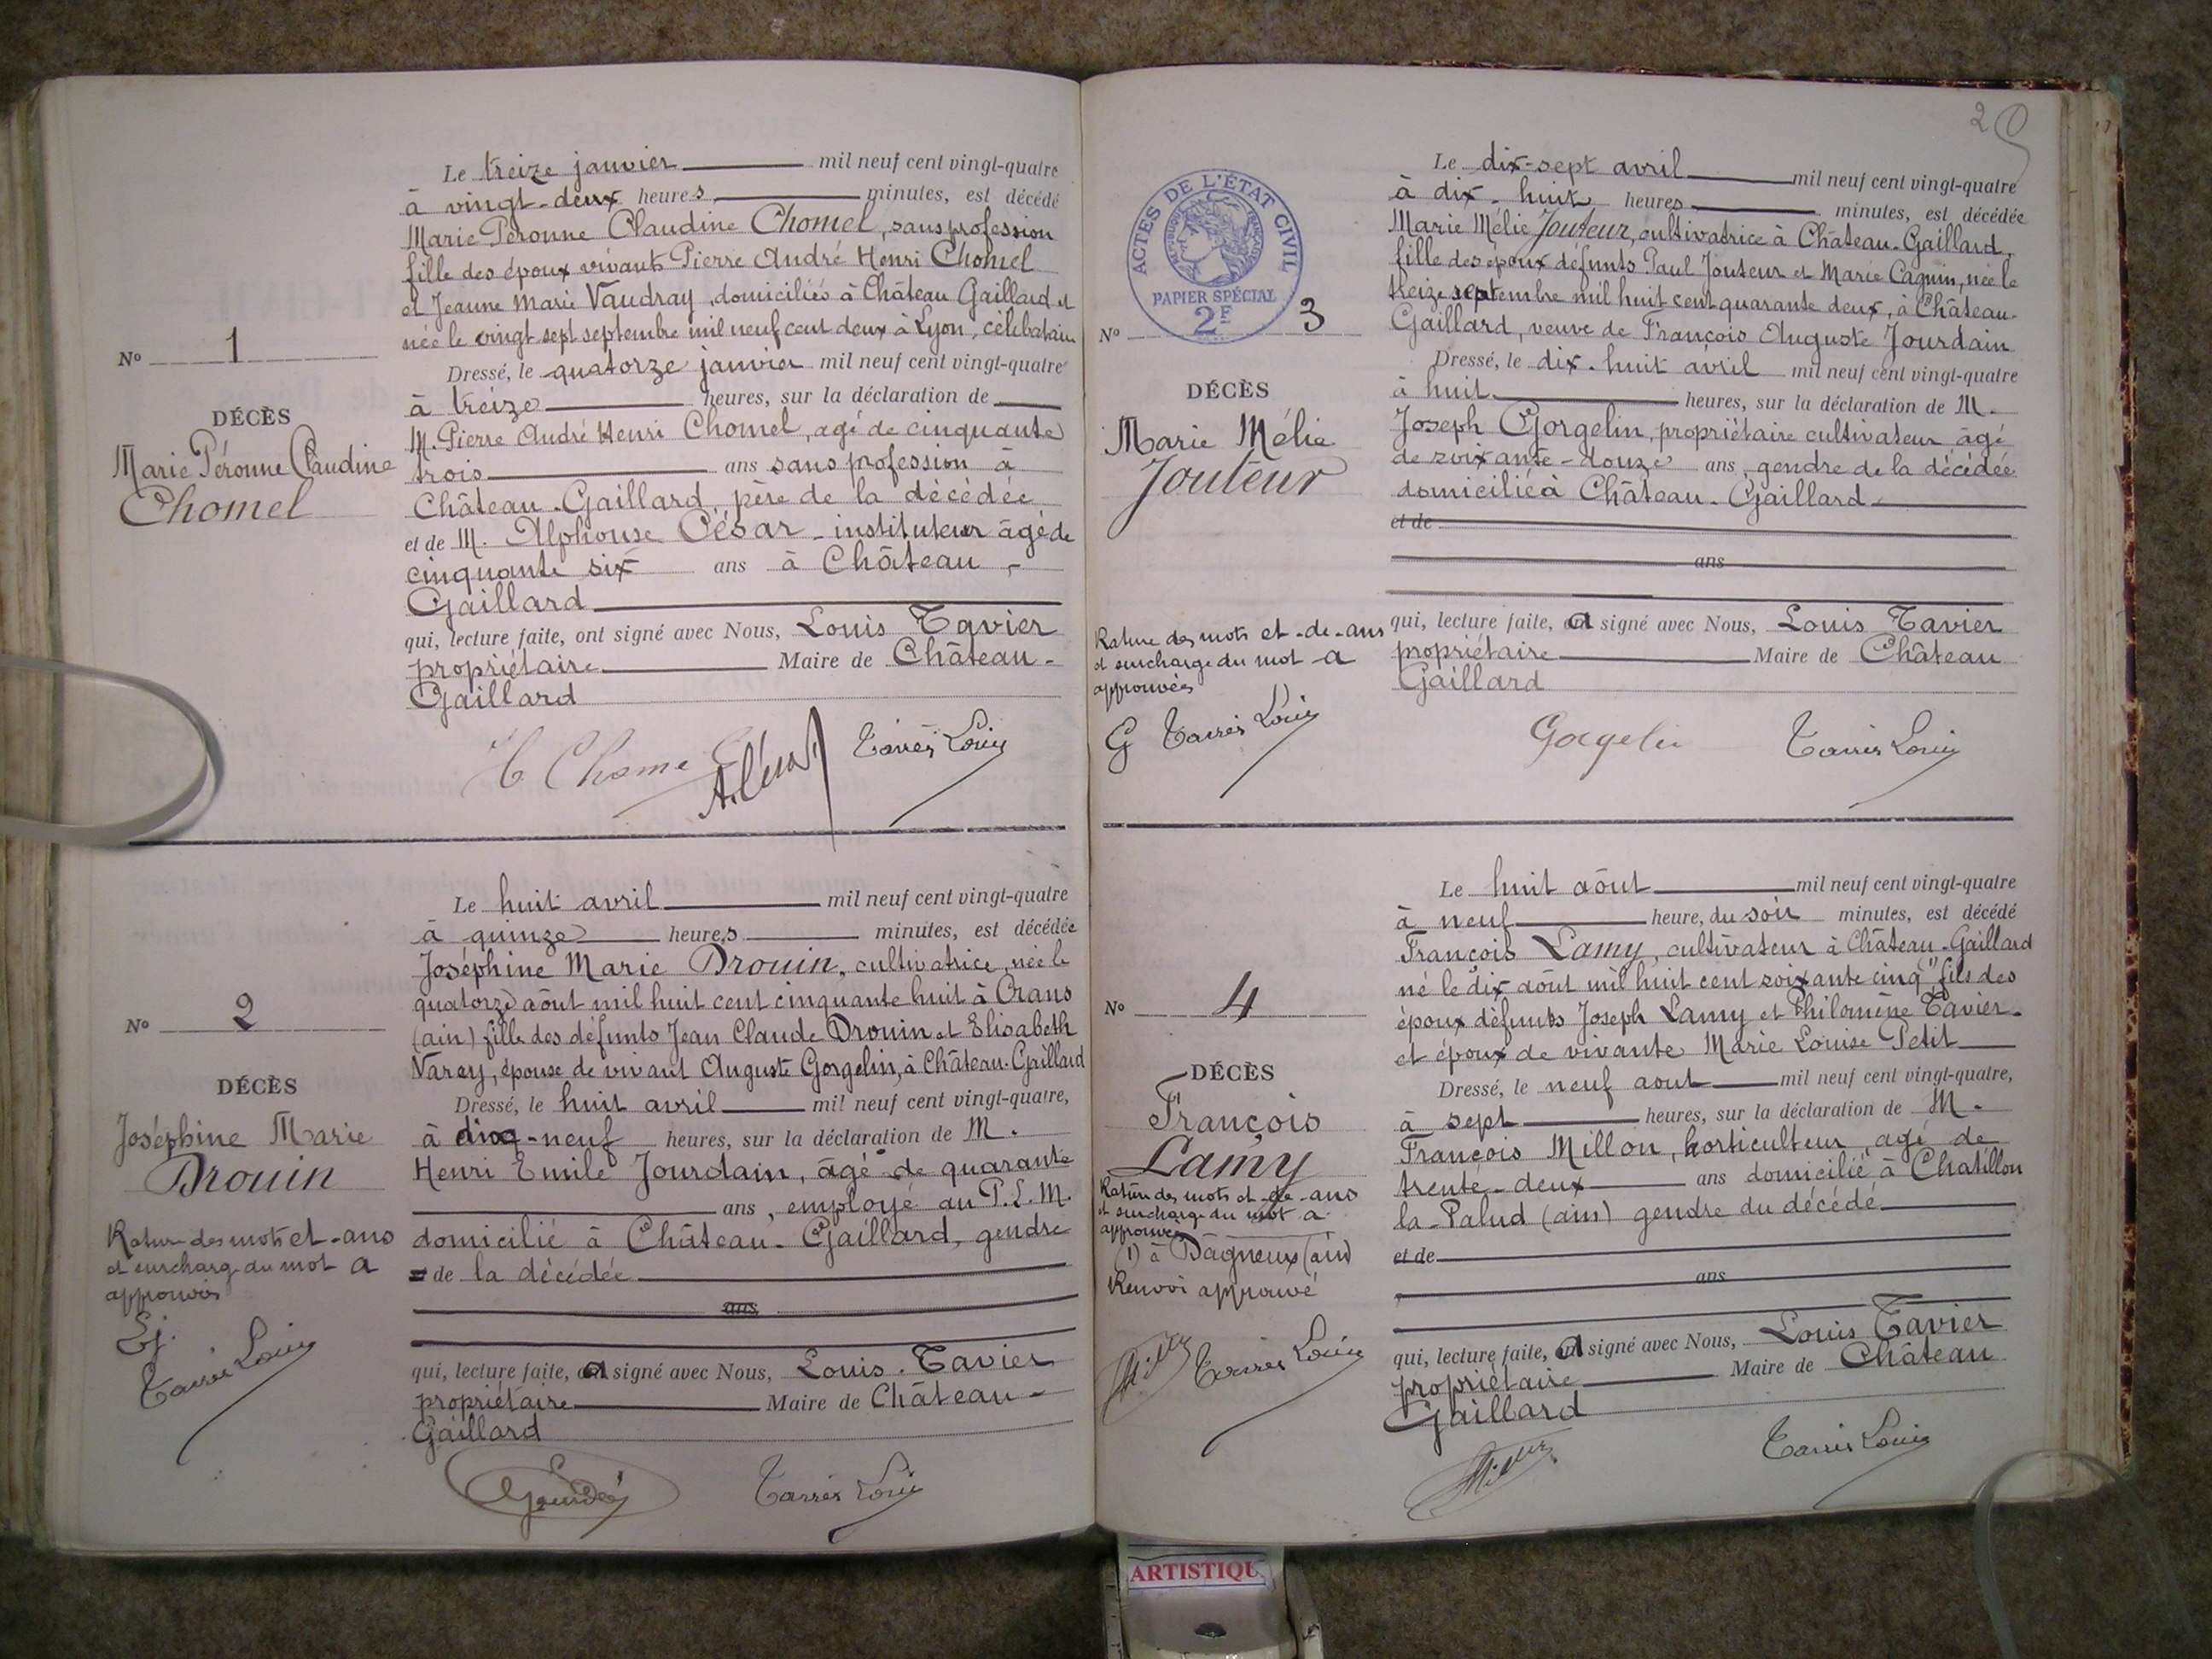 Le treize janvier mil neuf cent vingt-quatre
à vingt-deux heures minutes, est décédé
Marie Péronne Claudine Chomel, sans profession
fille des époux vivants Pierre André Henri Chomel
et Jeanne Marie Vaudray, domiciliés à Château Gaillard et
née le vingt sept septembre mil neuf cent deux à Lyon, célibataire
Nº 1
Dressé, le quatorze janvier mil neuf cent vingt-quatre
à treize heures, sur la déclaration de
DÉCÈS
M. Pierre André Henri Chomel, agé de cinquante
Marie Péronne Claudine
trois ans sans profession à
Chomel
Château-Gaillard, père de la décédée
et de M. Alphonse César - instituteur âgé de
cinquante six ans à Château -
Gaillard
qui, lecture faite, ont signé avec Nous, Louis Tavier
propriétaire Maire de Château -
Gaillard
Le huit avril mil neuf cent vingt-quatre
à quinze heures minutes, est décédée
Joséphine Marie Drouin, cultivatrice, née le
quatorze aôut mil huit cent cinquante huit à Crans
Nº 2
(ain) fille des défunts Jean Claude Drouin et Elisabeth
Varey, épouse de vivant Auguste Gorgelin, à Château-Gaillard
DÉCÈS
Dressé, le huit avril mil neuf cent vingt-quatre,
Joséphine Marie
Drouin
à dix-neuf heures, sur la déclaration de M.
Henri Emile Jourdain, âgé de quarante
ans, employé au P.L.M.
Rature des mots et - ans
et surcharge du mot a
approuvés
domicilié à Château-Gaillard, gendre
de la décédée
ans
Ej.
qui, lecture faite, a signé avec Nous, Louis Tavier
propriétaire Maire de Château -
Gaillard
2
ACTES DE L'ÉTAT CIVIL
PAPIER SPÉCIAL
2F
Le dix-sept avril mil neuf cent vingt-quatre
à dix-huit heures minutes, est décédée
Marie Mélie Jouteur, cultivatrice à Château-Gaillard,
fille des époux défunts Paul Jouteur et Marie Cagnin, née le
treize septembre mil huit cent quarante deux, à Château-
Nº 3
Gaillard, veuve de François Auguste Jourdain
Dressé, le dix-huit avril mil neuf cent vingt-quatre
DÉCÈS
à huit heures, sur la déclaration de M.
Marie Mélie
Jouteur
Joseph Gorgelin, propriétaire cultivateur âgé
de soixante-douze ans, gendre de la décédée
domicilié à Château-Gaillard
et de
ans
Rature des mots et - de - ans
et surcharge du mot - a
approuvés
qui, lecture faite, a signé avec Nous, Louis Tavier
propriétaire Maire de Château
Gaillard
G Tavier Louis
Gorgelin Tavier Louis
Le huit aôut mil neuf cent vingt-quatre
à neuf heure, du soir minutes, est décédé
François Lamy, cultivateur à Château-Gaillard
né le dix aôut mil huit cent soixante cinq (1) fils des
Nº 4
époux défunts Joseph Lamy et Philomène Tavier -
et époux de vivante Marie Louise Petit
DÉCÈS
Dressé, le neuf aout mil neuf cent vingt-quatre,
François
Lamy
à sept heures, sur la déclaration de M.
François Millon, horticulteur, agé de
trente-deux ans domicilié à Chatillon
la-Palud (ain) gendre du décédé
Rature des mots et - de - ans
et surcharge du mot a
approuvés
(1) à Dagneux (ain)
Renvoi approuvé
et de
ans
qui, lecture faite, a signé avec Nous, Louis Tavier
propriétaire Maire de Château
Gaillard
ARTISTIQU